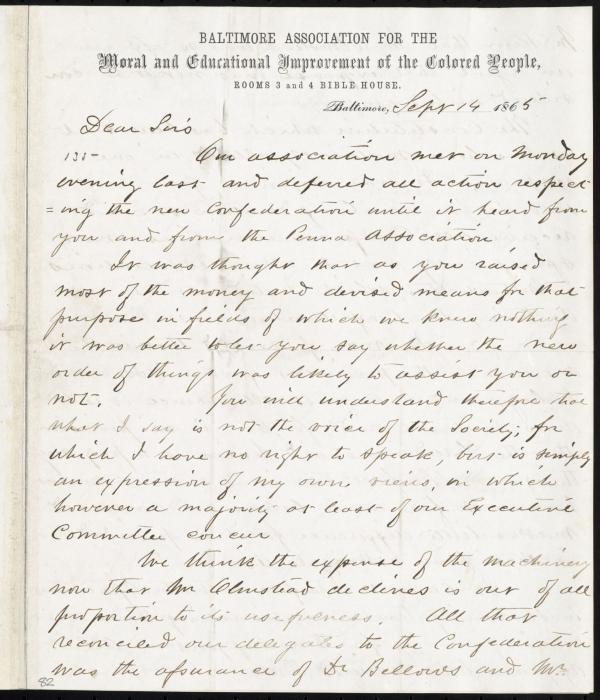 BALTIMORE ASSOCIATION FOR THE
Moral and Educational Improvement of the Colored People,
ROOMS 3 and 4 BIBLE HOUSE.
Baltimore, Sept 14 1865
Dear Sirs
Our association met on Monday
evening last and deferred all action respect
=ing the new Confederation until it heard from
you and from the Penna Association
It was thought that as you raised
most of the money and devised means for that
purpose in fields of which we knew nothing
it was better to let you say whether the new
order of things was likely to assist you or
not. You will understand therefore that
what I say is not the voice of the Society; for
which I have no right to speak, but is simply
an expression of my own views, in which
however a majority at least of our Executive
Committee concur
We think the expense of the machinery
now that Mr Olmstead declines is out of all
proportion to its usefulness. All that
reconciled our delegates to the Confederation
was the assurance of Dr Bellows and Mr
82